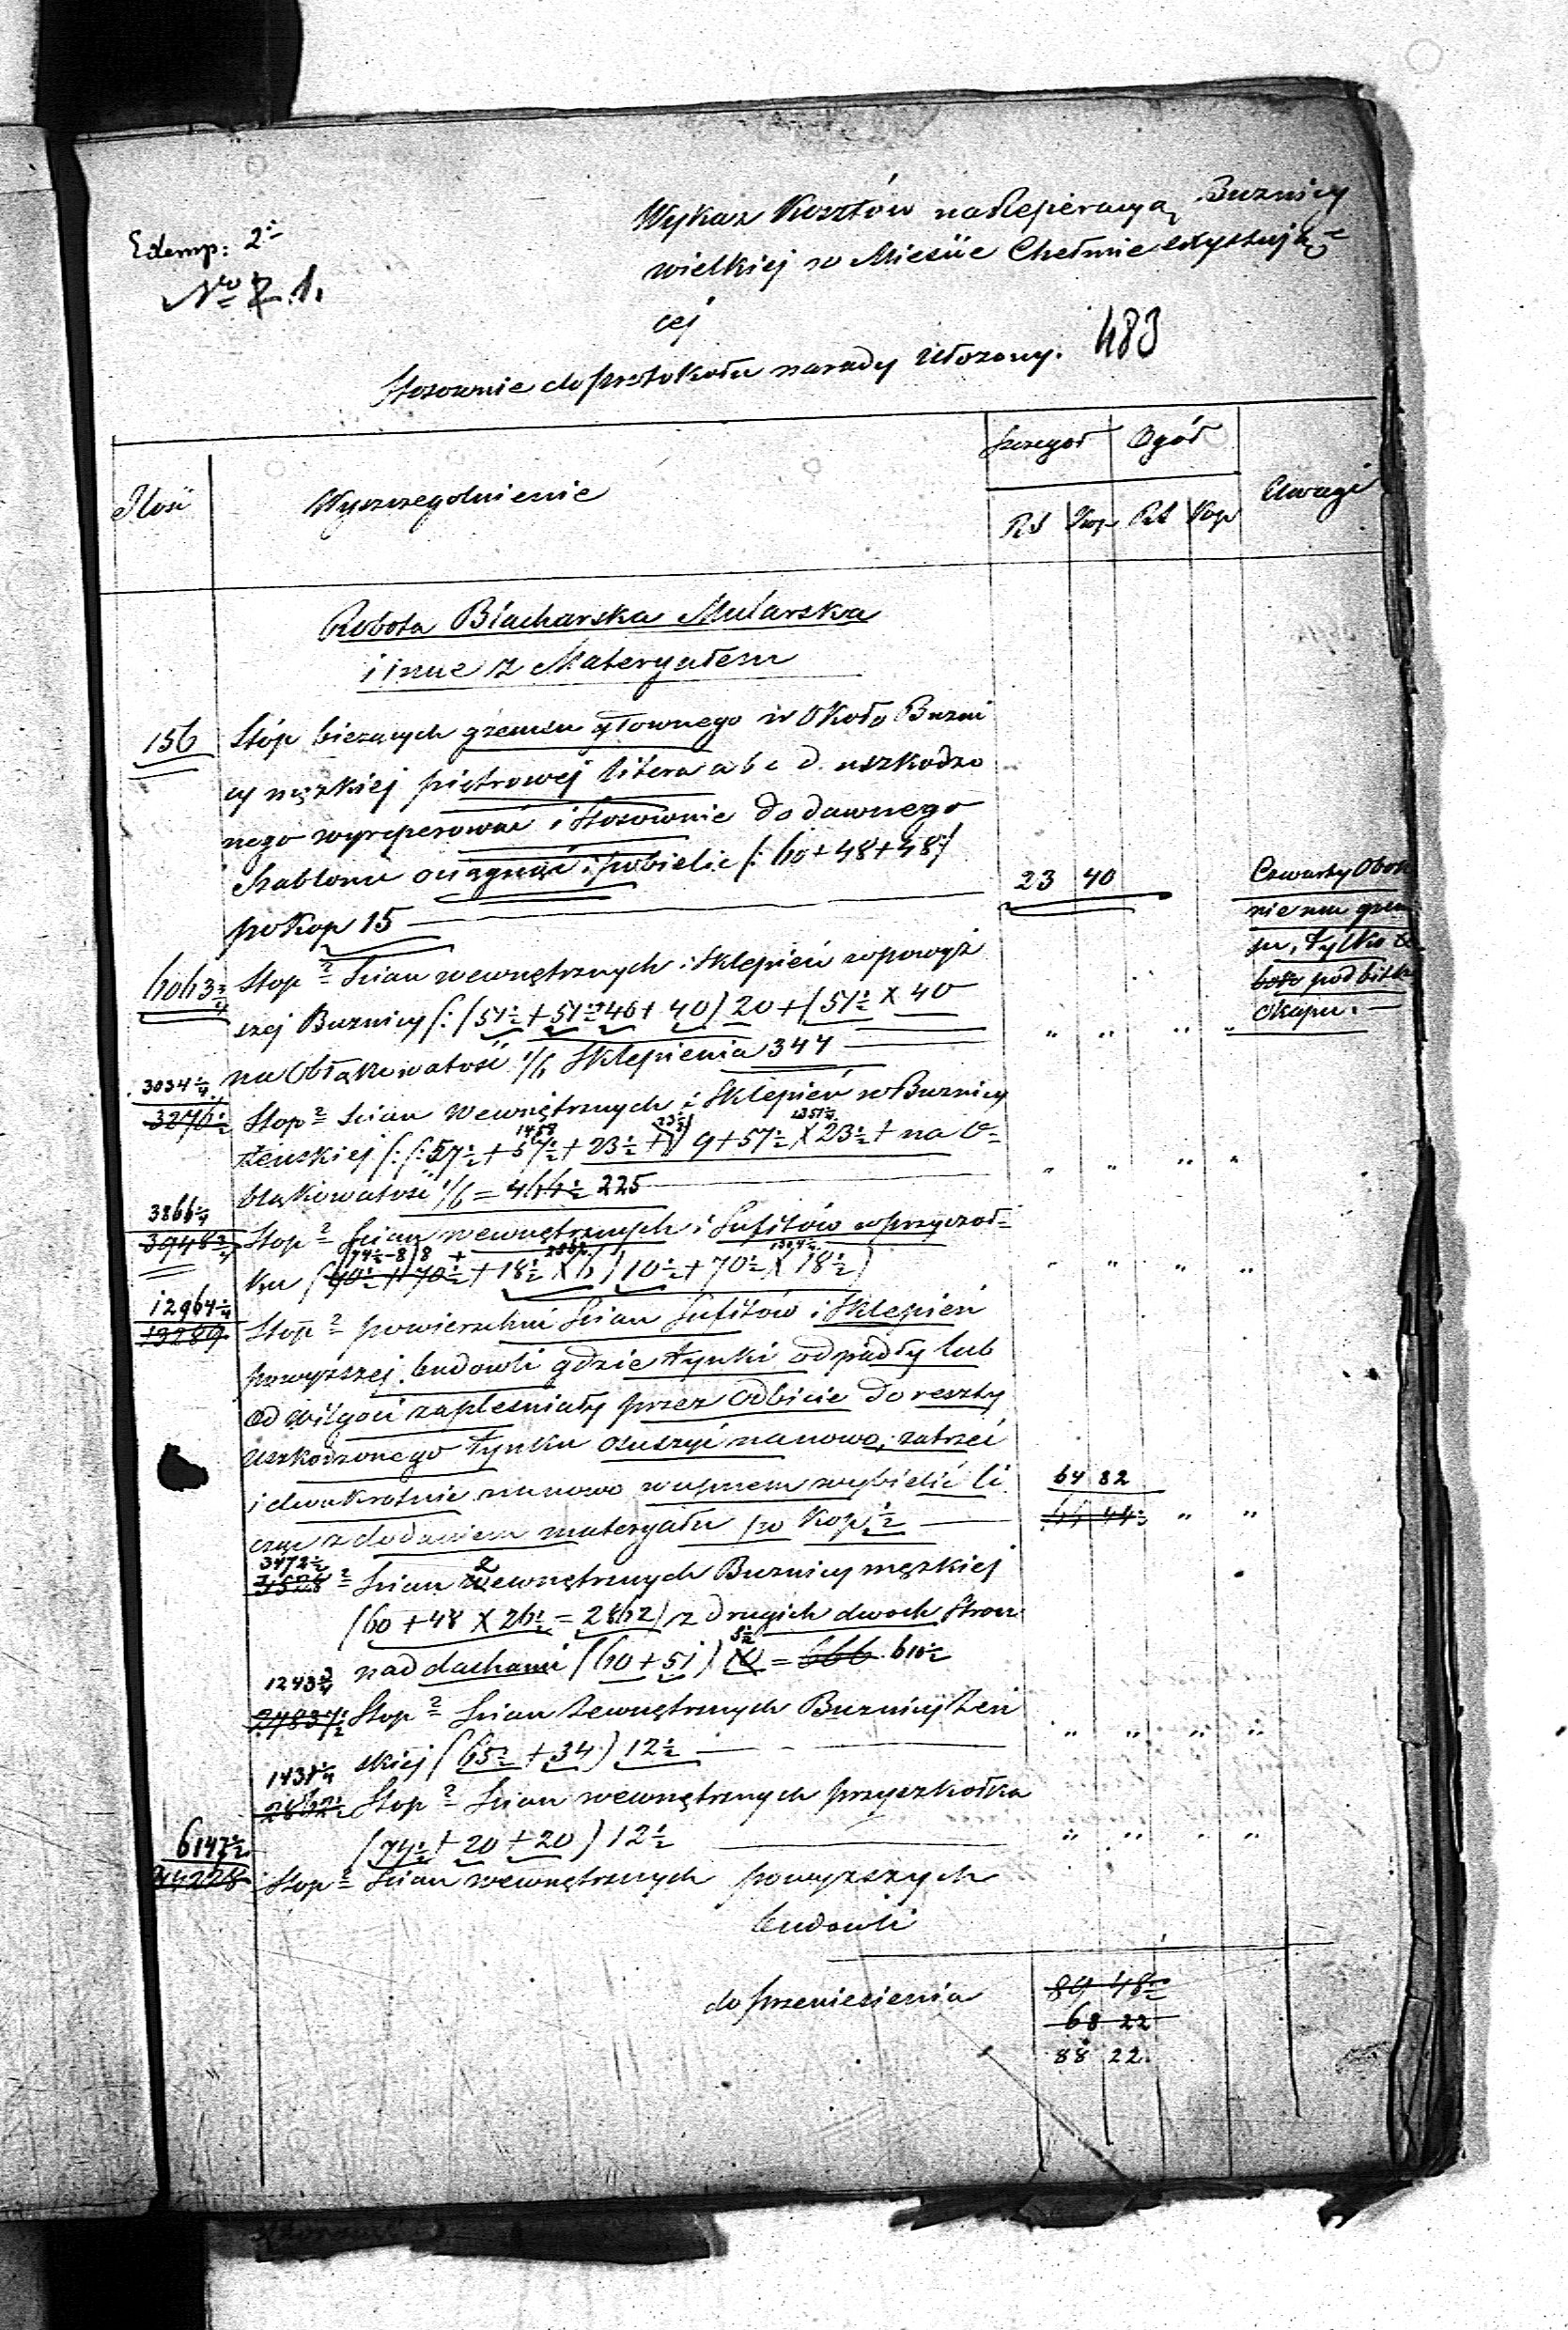 Exemp: 2i
No 2 1.
Wykaz Kosztów na Reperacyą Buznicy
wielkiej w Mieście Chełmie exystują=
cej
483
Stosownie do protokołu narady ułożony.
Ilość Wyszczegolnienie Szczegoł Ogół Uwagi
RS Kop RS Kop
Robota Blacharska Mularska
i inne z Materyałem
156 Stóp bieżących gzemsu głownego w Około Buzni
cy męzkiej piętrowej litera a b c d. uszkodzo
nego wyreperować i stosownie do dawnego
Szablonu osiągnąć i pobielić /: 60 + 48 + 48 :/
po Kop 15 23 40
Czwarty Obok
nie ma gzem
su, tylko
pod bitka
Okapu.
6063 3/4 Stop 2 Ścian wewnętrznych i Sklepień w powyż
szej Buznicy /: (51 1/2 + 51 1/2 + 46 + 40) 20 + (51 1/2 X 40
na Obłąkowatość 1/6 Sklepienia 344
3034 1/4
3276 1/2 Stop 2 Ścian Wewnętrznych i Sklepień w Buznicy
żeńskiej /: /: 57 1/2 + 57 1/2 + 23 1/2 + 9 + 57 1/2 X 23 1/2 + na O=
błąkowatość 1/6 = 464 1/2 225
3866 1/4
3948 3/4 Stop 2 Ścian wewnętrznych i Sufitów w przyczoł=
ku + 18 1/2 X 6) 10 1/2 + 70 1/2 X 18 1/2)
12964 1/4
13289 Stop 2 powierzchni Ścian Sufitów i Sklepień
powyższej budowli gdzie tynki odpadły lub
od wilgoci zapleśniały przez Odbicie do reszty
uszkodzonego tynku osuszyć na nowo, zatrzeć
i dwukrotnie na nowo wapnem wybielić li
cząc z dodaniem materyału po Kop 1/2 64 82
3472 1/2
3528 2 Ścian Zewnętrznych Buznicy męzkiej
(60 + 48 X 26 1/2 = 2862) z drugich dwoch Stron
nad dachami (60 + 51) = 666 610 1/2
1243 3/4
Stop 2 Ścian Zewnętrznych Buznicy żeń
skiej (65 1/2 + 34) 12 1/2
1431 1/4
2862 1/2 Stop 2 Ścian zewnętrznych przyszkołka
(74 1/2 + 20 + 20) 12 1/2
6147 1/2
Stop 2 Ścian zewnętrznych powyższych
budowli
do przeniesienia 89 48 1/2
68 22
88 22